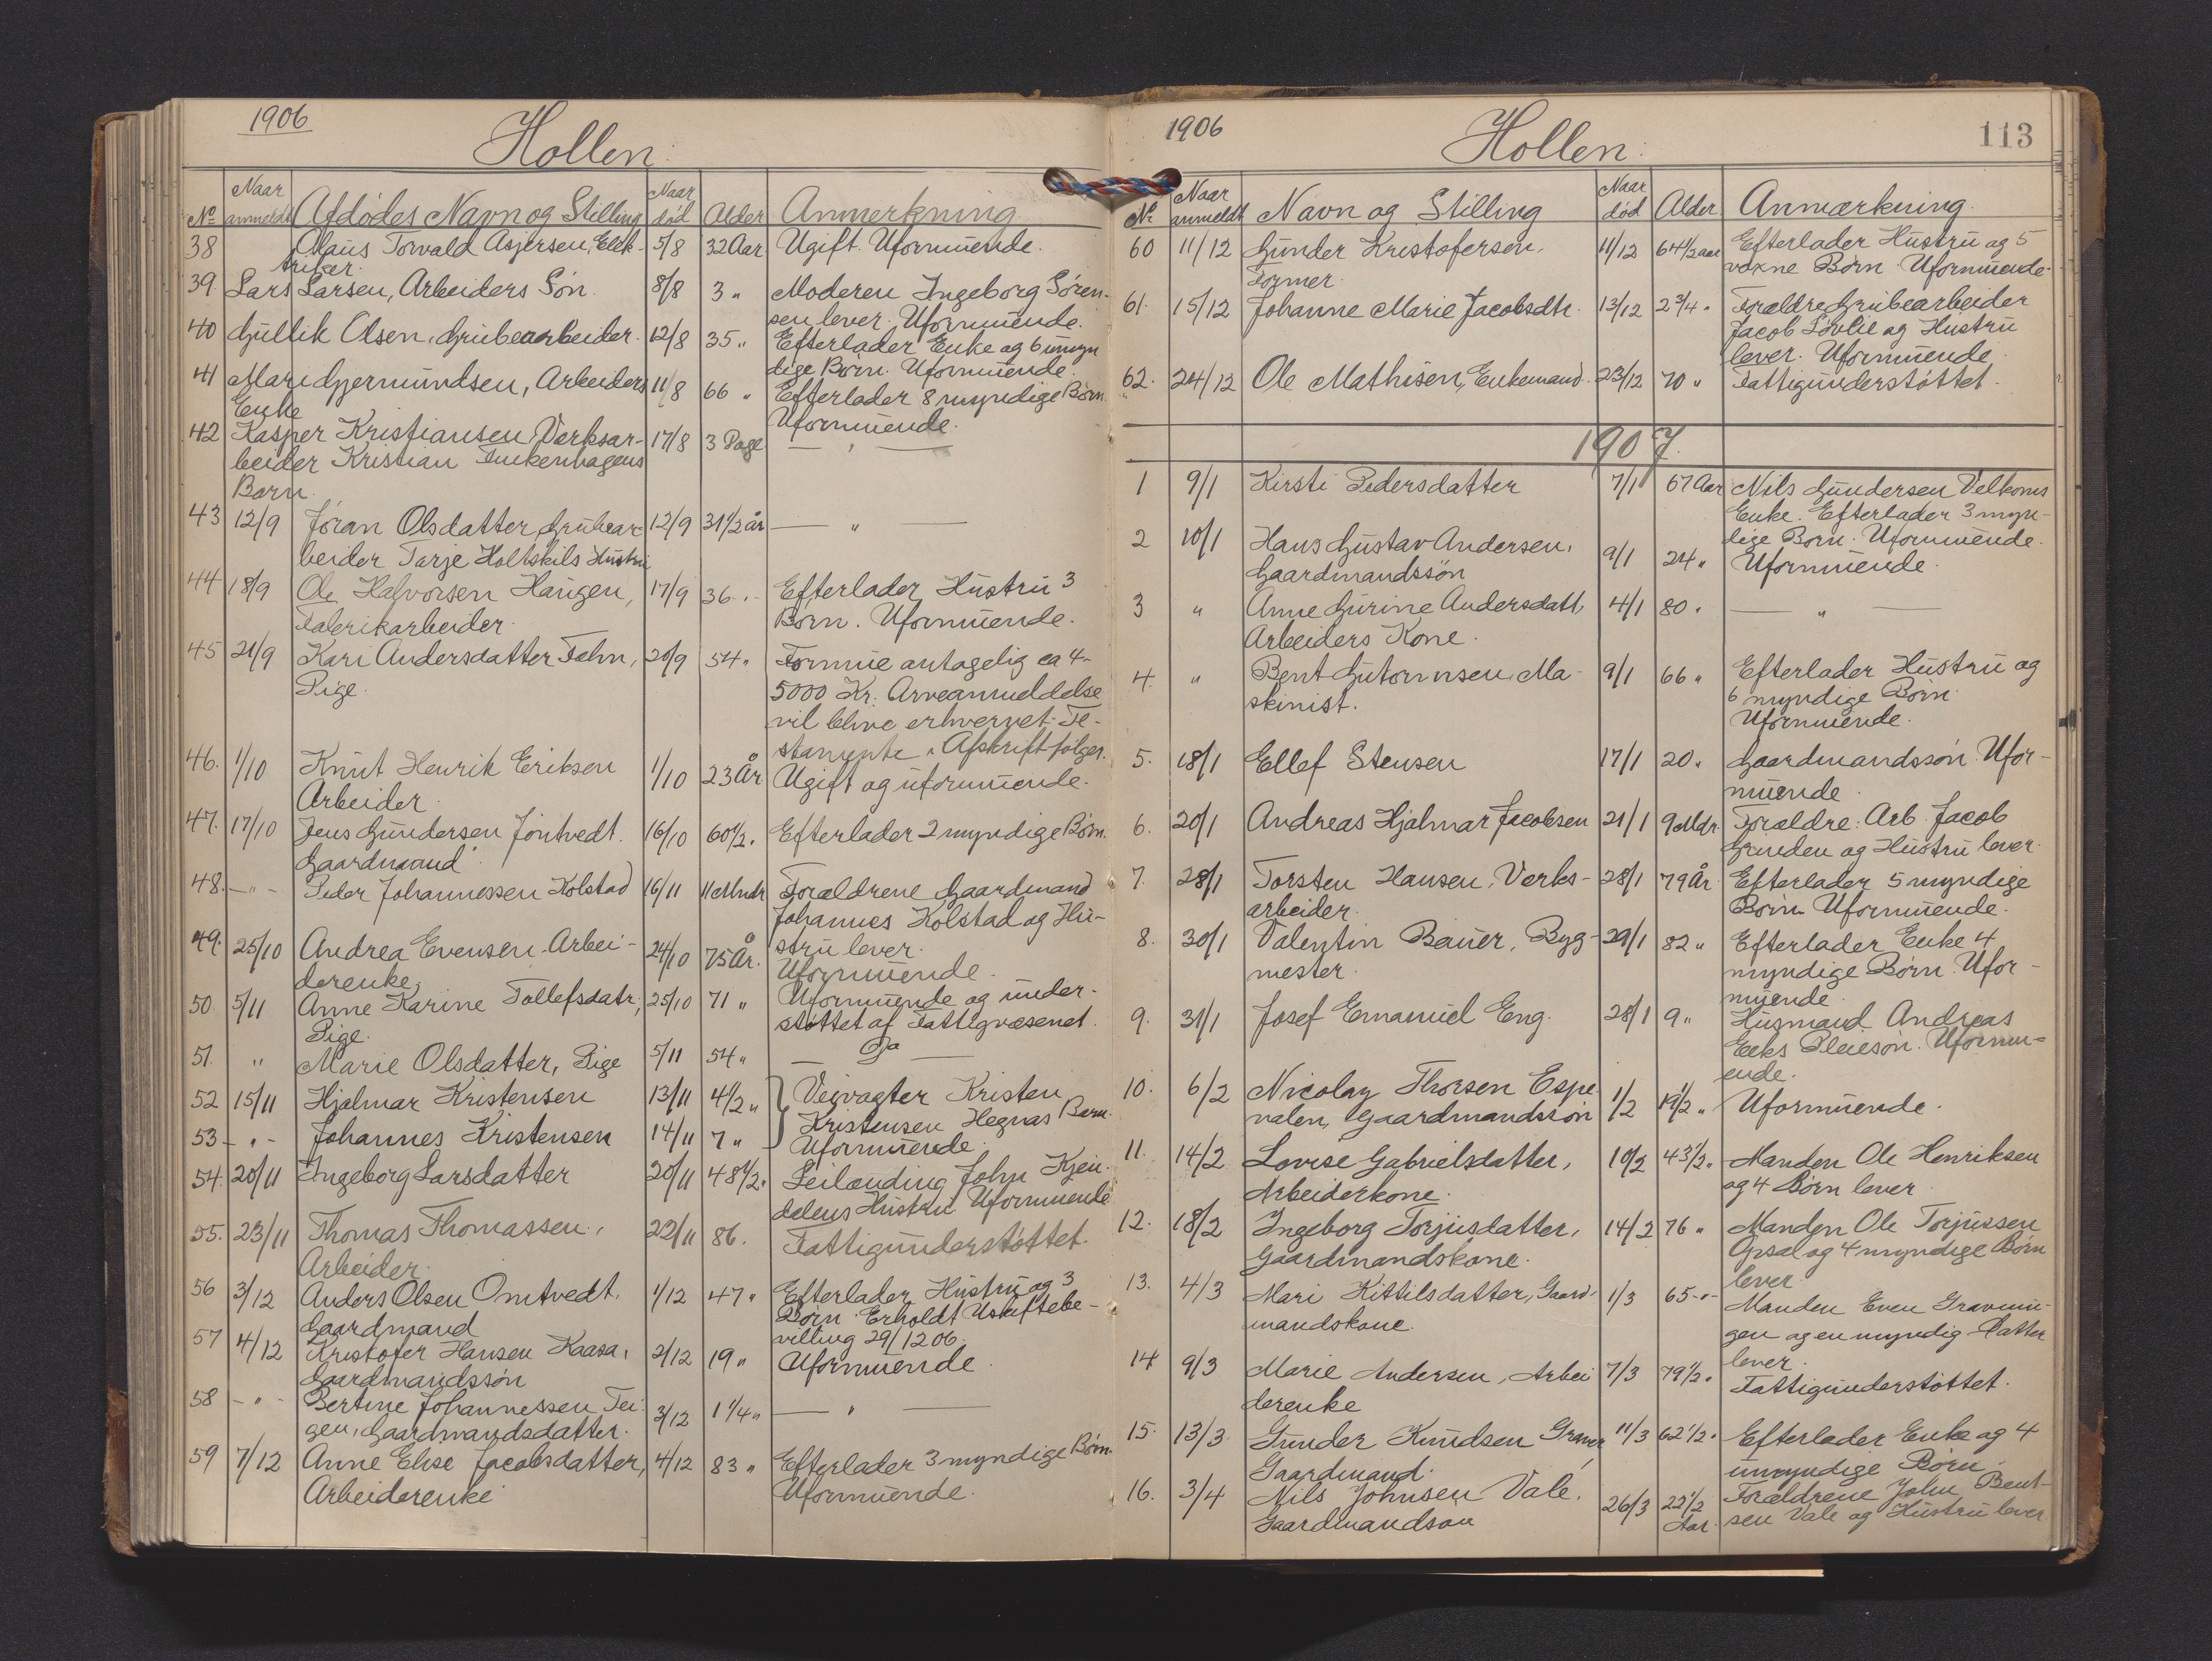 1906
Hollen.
No Naar anmeldt Afdødes Navn og Stilling Naar død Alder Anmerkning
38 Olaus Torvald Asjersen, Elek- 5/8 32 Aar Ugift. Uformuende.
triker.
39 Lars Larsen, Arbeiders Søn. 8/8 3 " Moderen Ingeborg Søren-
sen lever. Uformuende.
40 Gullik Olsen, Grubearbeider. 12/8 35 " Efterlader Enke og 6 umyn
dige Børn. Uformuende.
41 Mari Gjermundsen, Arbeiders 11/8 66 " Efterlader 8 myndige Børn
Enke Uformuende.
42 Kasper Kristiansen Verksar- 17/8 3 Dage — " —
beider Kristian Finkenhagens
Barn.
43 12/9 Joran Olsdatter Grubear- 12/9 31 1/2 år — " —
beider Tarje Holtskils Hustru
44 18/9 Ole Halvorsen Haugen, 17/9 36 " Efterlader Hustru 3
Fabrikarbeider. Børn. Uformuende.
45 21/9 Kari Andersdatter Fehn, 20/9 54 " Formue antagelig ca 4-
Pige. 5000 Kr. Arveanmeldelse
vil blive erhvervet. Te-
stamente i Afskrift følger.
46. 1/10 Knut Henrik Eriksen 1/10 23 År Ugift og uformuende.
Arbeider.
47. 17/10 Jens Gundersen Jontvedt. 16/10 60 1/2 " Efterlader 2 myndige Børn.
Gaardmand.
48. — " — Peder Johannessen Kolstad 16/11 11 Mndr Forældrene Gaardmand
Johannes Kolstad og Hu-
stru lever.
49. 25/10 Andrea Evensen Arbei- 24/10 75 År. Uformuende.
derenke,
50. 5/11 Anne Karine Tollefsdatr, 25/10 71 " Uformuende og under-
Pige. støttet af Fattigvæsenet.
51. " Marie Olsdatter, Pige 5/11 54 " — Do —
52 15/11 Hjalmar Kristensen 13/11 4 1/2 " Veivagter Kristen
Kristensen Hegnas Barn.
53 — " — Johannes Kristensen 14/11 7 " Uformuende.
54. 20/11 Ingeborg Larsdatter 20/11 48 1/2 " Leilænding John Kjen-
dalens Hustru Uformuende
55. 23/11 Thomas Thomassen, 22/11 86. Fattigunderstøttet.
Arbeider.
56 3/12 Anders Olsen Omtvedt. 1/12 47 " Efterlader Hustru og 3
Gaardmand Børn. Erholdt Uskiftebe-
villing 29/12 06.
57 4/12 Kristofer Hansen Kaasa, 2/12 19 " Uformuende.
Gaardmandssøn
58 — " — Bertine Johannessen Tei- 3/12 1 1/4 " — " —
gen, Gaardmandsdatter.
59 7/12 Anne Elise Jacobsdatter, 4/12 83 " Efterlader 3 myndige Børn
Arbeiderenke Uformuende.
1906
Hollen.
113
Nr Naar anmeldt Navn og Stilling Naar død Alder Anmærkning.
60 11/12 Gunder Kristofersen. 11/12 64 1/2 aar Efterlader Hustru og 5
Former. voxne Børn. Uformuende.
61. 15/12 Johanne Marie Jacobsdtr. 13/12 2 3/4 " Forældre Grubearbeider
Jacob Løvlie og Hustru
lever. Uformuende.
62. 24/12 Ole Mathisen, Enkemand. 23/12 70 " Fattigunderstøttet.
1907.
1 9/1 Kirsti Pedersdatter 7/1 67 Aar Nils Gundersen Velkoms
Enke. Efterlader 3 myn-
dige Børn. Uformuende.
2 10/1 Hans Gustav Andersen, 9/1 24 " Uformuende.
Gaardmandssøn
3 " Anne Gurine Andersdatt, 4/1 80 " — " —
Arbeiders Kone.
4. " Bent Gutormsen, Ma- 9/1 66 " Efterlader Hustru og
skinist. 6 myndige Børn.
Uformuende.
5. 18/1 Ellef Stensen 17/1 20 " Gaardmandssøn. Ufor-
muende.
6. 20/1 Andreas Hjalmar Jacobsen 21/1 9 Mdr. Forældre: Arb. Jacob
Grinden og Hustru lever.
7. 28/1 Torsten Hansen, Verks- 28/1 79 År Efterlader 5 myndige
arbeider. Børn Uformuende.
8. 30/1 Valentin Bauer, Byg- 29/1 82 " Efterlader Enke 4
mester. myndige Børn. Ufor-
muende.
9. 31/1 Josef Emanuel Eng. 28/1 9 " Husmand Andreas
Eeks Pleiesøn. Uformu-
ende.
10. 6/2 Nicolay Thorsen Espe 1/2 19 1/2 " Uformuende.
valen, Gaardmandssøn
11. 14/2 Lovise Gabrielsdatter, 10/2 43 1/2 " Manden Ole Henriksen
Arbeiderkone. og 4 Børn lever.
12. 18/2 Ingeborg Torjusdatter, 14/2 76 " Manden Ole Torjussen
Gaardmandskone. Opsal og 4 myndige Børn
lever.
13. 4/3 Mari Kittilsdatter, Gaard- 1/3 65 " Manden Even Gravnin-
mandskone. gen og en myndig Datter
lever.
14 9/3 Marie Andersen, Arbei 7/3 79 1/2 " Fattigunderstøttet.
derenke
15. 13/3 Gunder Knudsen Graver, 11/3 62 1/2 " Efterlader Enke og 4
Gaardmand. umyndige Børn.
16. 3/4 Nils Johnsen Vale. 26/3 22 1/2 Aar. Forældrene John Bent-
Gaardmandsøn sen Vale og Hustru lever